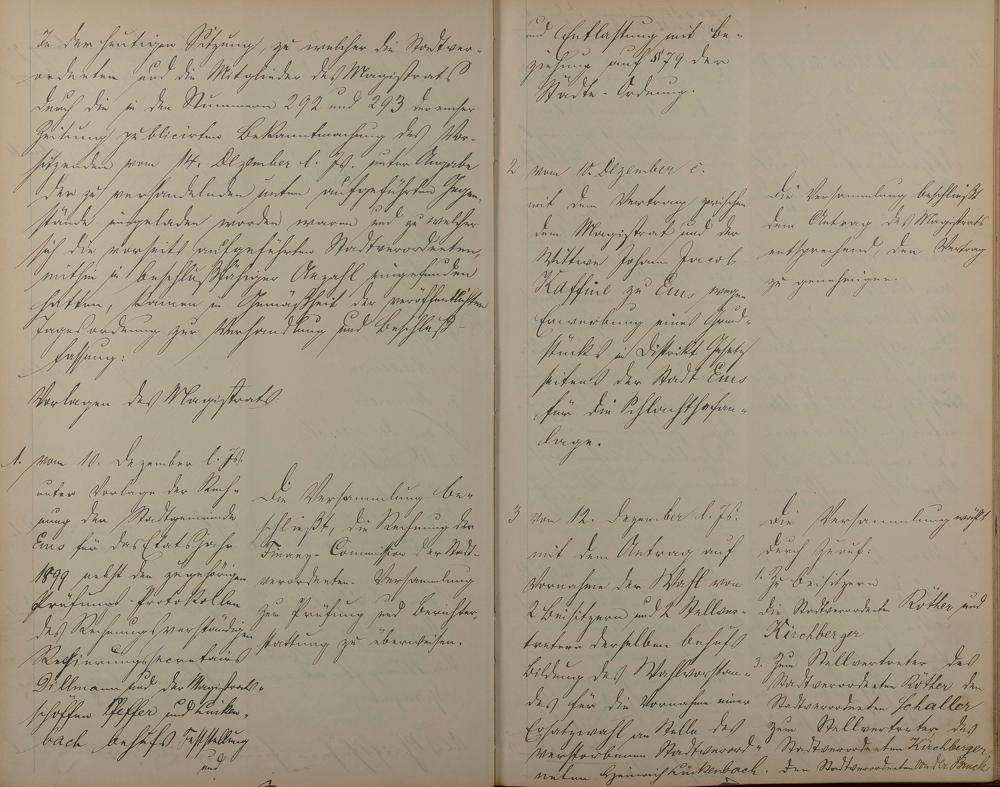 In der heutigen Sitzung, zu welcher die Stadtver-
ordneten und die Mitglieder des Magistrats
durch die in den Nummern 292 und 293 der Emser
Zeitung publicirten Bekanntmachung des Vor-
sitzenden vom 14. Dezember l. Js. unter Angabe
der zu verhandelnden unten aufgeführten Gegen-
stände eingeladen worden waren und zu welcher
sich die vorseits aufgeführten Stadtverordneten,
mithin in beschlußfähiger Anzahl eingefunden
hatten, kamen in Gemäßheit der veröffentlichten
Tagesordnung zur Verhandlung und Beschluß-
fassung:
Vorlagen des Magistrats
1. vom 10. Dezember l. Js.
unter Vorlage der Rech-
nung der Stadtgemeinde
Ems für das Etatsjahr
1899 nebst den zugehörigen
Prüfungs-Protokollen
des Rechnungsverständigen
Regierungssecretairs
Dillmann und der Magistrats-
schöffen Pfeffer und Linken-
bach behufs Feststellung
und
Die Versammlung be-
schließt, die Rechnung der
Finanz-Commission der Stadt-
verordneten-Versammlung
zur Prüfung und Berichter-
stattung zu überweisen.
und Entlastung mit Be-
ziehung auf § 79 der
Städte-Ordnung.
2 vom 10. Dezember c.
mit dem Vertrag zwischen
dem Magistrat und der
Wittwe Johann Jacob
Kaffine zu Ems wegen
Erwerbung eines Grund-
stückes in Distrikt
seitens der Stadt Ems
für die Schlachthofan-
lage.
Die Versammlung beschließt
dem Antrag des Magistrats
entsprechend, den Vertrag
zu genehmigen.
3 vom 12. Dezember l. Js.
mit dem Antrag auf
Vornahme der Wahl von
2 Beisitzern und 2 Stellver-
tretern derselben behufs
Bildung des Wahlvorstan-
des für die Vornahme einer
Ersatzwahl an Stelle des
verstorbenen Stadtverord-
neten Heinrich Linkenbach.
Die Versammlung wählt
durch Zuruf:
1. Zu Beisitzern
die Stadtverordneten Röther und
Kirchberger
2. Zum Stellvertreter des
Stadtverordneten Röther den
Stadtverordneten Schaller
zum Stellvertreter des
Stadtverordneten Kirchberger
den Stadtverordneten von der Bruck